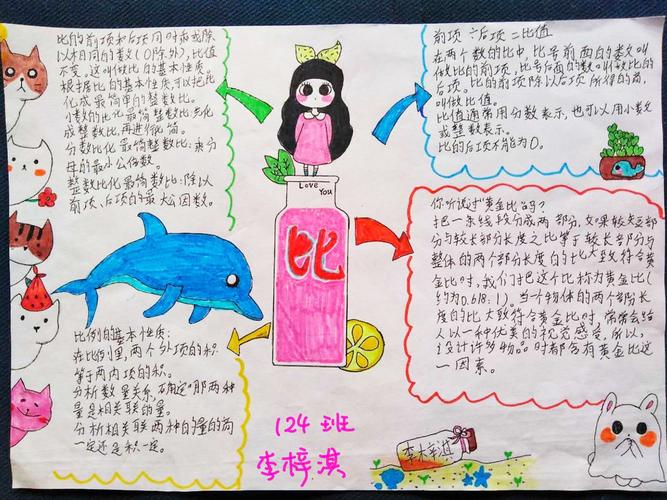 比的前项和后项同时乘或除
以相同的数(0除外),比值
不变。这叫做比的基本性质。
根据比的基本性质,可以把比
化成最简单的整数比。
小数的比化最简整数比:先化
成整数比,再进行化简。
分数比化最简整数比:乘分
母的最小公倍数。
整数比化最简整数比:除以
前项、后项的最大公因数。
前项:后项=比值
在两个数的比中,比号前面的数叫
做比的前项,比号后面的数叫做比的
后项。比的前项除以后项所得的商,
叫做比值。
比值通常用分数表示,也可以用小数
或整数表示。
比的后项不能为0。
Love
You
比
你听说过"黄金比"吗?
把一条线段分成两部分,如果较短部
分与较长部分长度之比等于较长部分与
整体的两个部分长度的比大致符合黄
金比时,我们把这个比称为黄金比(
约为0.618:1)。当一个物体的两个部分长
度的比大致符合黄金比时,常常会给
人以一种优美的视觉感受,所以,
设计许多物品时都含有黄金比这
一因素。
比例的基本性质:
在比例里,两个外项的积
等于两内项的积。
分析数量关系,确定那两种
量是相关联的量。
分析相关联两种的量的商
一定还是积一定。
124班
李梓淇
李梓淇